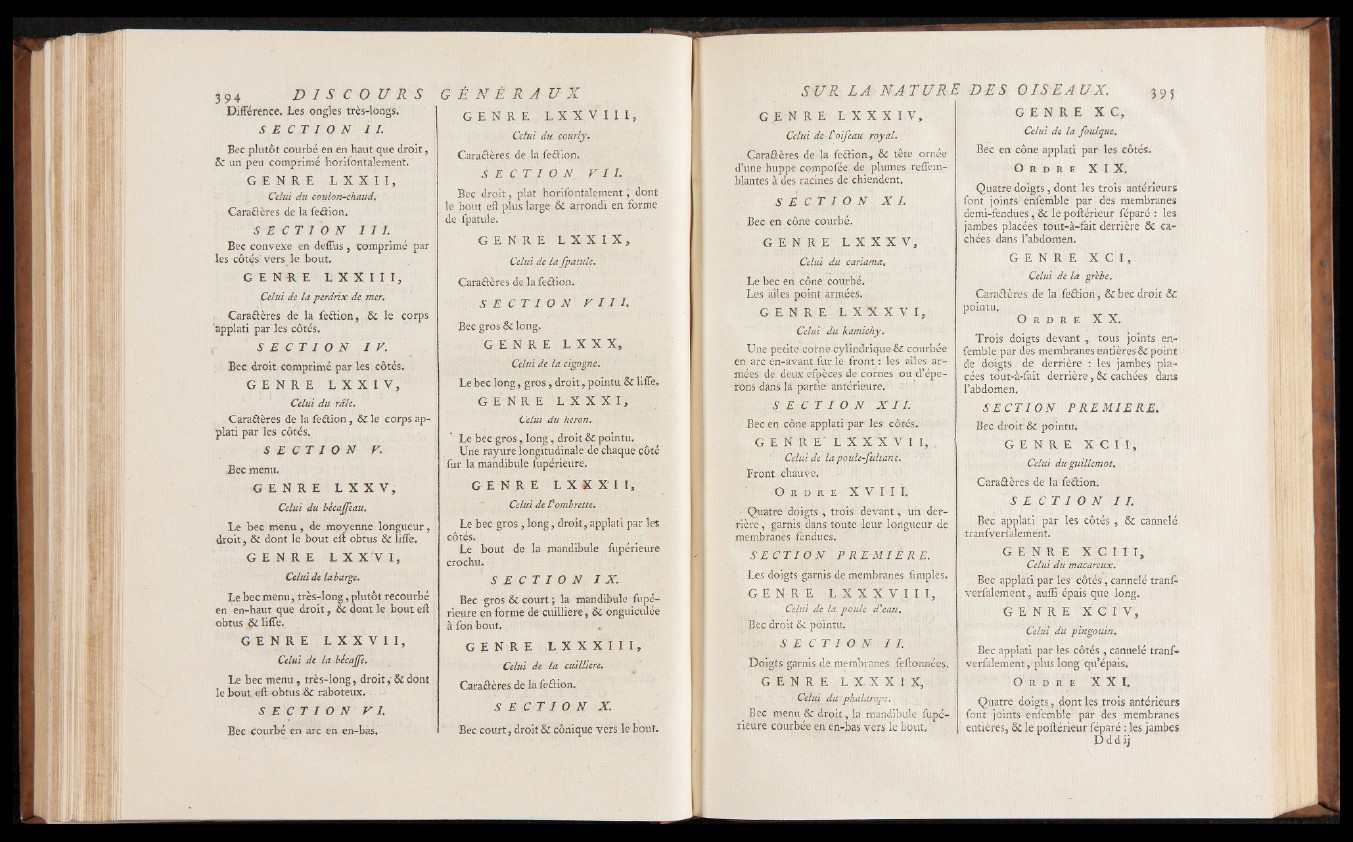 394 DISCOURS GÉNÉRAUX
Différence. Les ongles très-longs.
SECTION II.
Bec plutôt courbé en en haut que droit,
& un peu comprimé horifontalement.
GENRE LXXII,
Celui du coulon-chaud.
Caractères de la fection.
SECTION III.
Bec convexe en deffus, comprimé par
les côtés vers le bout.
GENRE LXXIII,
Celui de la perdrix de mer.
Caractères de la fection, & le corps
applati par les côtés.
SECTION IV.
Bec droit comprimé par les côtés.
GENRE LXXIV,
Celui du râle.
Caractères de la fection, & le corps ap-
plati par les côtés.
SECTION V.
Bec menu.
GENRE LXXV,
Celui du bécaffeau.
Le bec menu, de moyenne longueur,
droit, & dont le bout eft obtus & liffe.
GENRE LXXVI,
Celui de la barge.
Le bec menu, très-long, plutôt recourbé
en en-haut que droit, & dont le bout eft
obtus & liffe.
GENRE LXXVII,
Celui de la bécaffe.
Le bec menu, très-long, droit, & dont
le bout eft obtus & raboteux.
SECTION VI.
Bec courbé en arc en en-bas.
GENRE LXXVIII,
Celui du courly.
Caractères de la fection.
SECTION VII.
Bec droit, plat horifontalement, dont
le bout eft plus large & arrondi en forme
de fpatule.
GENRE LXXIX,
Celui de la fpatule.
Caractères de la fection.
SECTION VIII.
Bec gros & long.
GENRE LXXX,
Celui de la cigogne.
Le bec long, gros, droit, pointu & liffe.
GENRE LXXXI,
Celui du heron.
Le bec gros, long, droit & pointu.
Une rayure longitudinale de chaque côté
fur la mandibule fupérieure.
GENRE LXXXII,
Celui de l'ombrette.
Le bec gros, long, droit, applati par les
côtés.
Le bout de la mandibule fupérieure
crochu.
SECTION IX.
Bec gros & court; la mandibule fupé-
rieure en forme de cuilliere, & onguiculée
à fon bout.
GENRE LXXXIII,
Celui de la cuilliere.
Caractères de la fection.
SECTION X.
Bec court, droit & cônique vers le bout.
SUR LA NATURE DES OISEAUX. 395
GENRE LXXXIV,
Celui de l'oifeau royal.
Caractères de la fection, & tête ornée
d'une huppe compofée de plumes reffem-
blantes à des racines de chiendent.
SECTION XI.
Bec en cône courbé.
GENRE LXXXV,
Celui du cariama.
Le bec en cône courbé.
Les aîles point armées.
GENRE LXXXVI,
Celui du kamichy.
Une petite corne cylindrique & courbée
en arc en-avant fur le front: les aîles ar-
mées de deux efpèces de cornes ou d'épe-
rons dans la partie antérieure.
SECTION XII.
Bec en cône applati par les côtés.
GENRE LXXXVII,
Celui de la poule-fultane.
Front chauve.
ORDRE XVIII.
Quatre doigts, trois devant, un der-
rière, garnis dans toute leur longueur de
membranes fendues.
SECTION PREMIERE.
Les doigts garnis de membranes fimples.
GENRE LXXXVIII,
Celui de la poule d'eau.
Bec droit & pointu.
SECTION II.
Doigts garnis de membranes feftonnées.
GENRE LXXXIX,
Celui du phalarope.
Bec menu & droit, la mandibule fupé-
rieure courbée en en-bas vers le bout.
GENRE XC,
Celui de la foulque.
Bec en cône applati par les côtés.
ORDRE XIX.
Quatre doigts, dont les trois antérieurs
font joints enfemble par des membranes
demi-fendues, & le poftérieur féparé: les
jambes placées tout-à-fait derrière & ca-
chées dans l'abdomen.
GENRE XCI,
Celui de la grèbe.
Caractères de la fection, & bec droit &
pointu.
ORDRE XX.
Trois doigts devant, tous joints en-
femble par des membranes entières & point
de doigts de derrière: les jambes pla-
cées tout-à-fait derrière, & cachées dans
l'abdomen.
SECTION PREMIERE.
Bec droit & pointu.
GENRE XCII,
Celui du guillemot.
Caractères de la fection.
SECTION II.
Bec applati par les côtés, & cannelé
tranfverfalement.
GENRE XCIII,
Celui du macareux.
Bec applati par les côtés, cannelé tranf-
verfalement, auffi épais que long.
GENRE XCIV,
Celui du pingouin.
Bec applati par les côtés, cannelé tranf-
verfalement, plus long qu'épais.
ORDRE XXI.
Quatre doigts, dont les trois antérieurs
font joints enfemble par des membranes
entières, & le poftérieur féparé: les jambes
Dddij